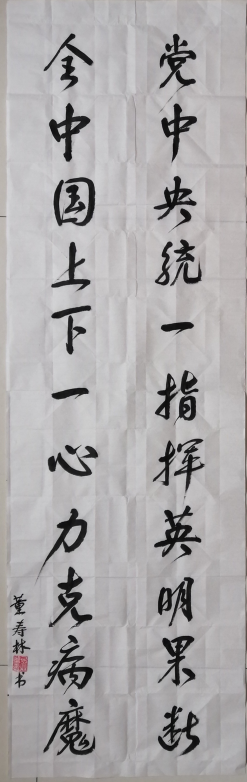 党中央统一指挥英明果断
全中国上下一心力克病魔
董寿林书